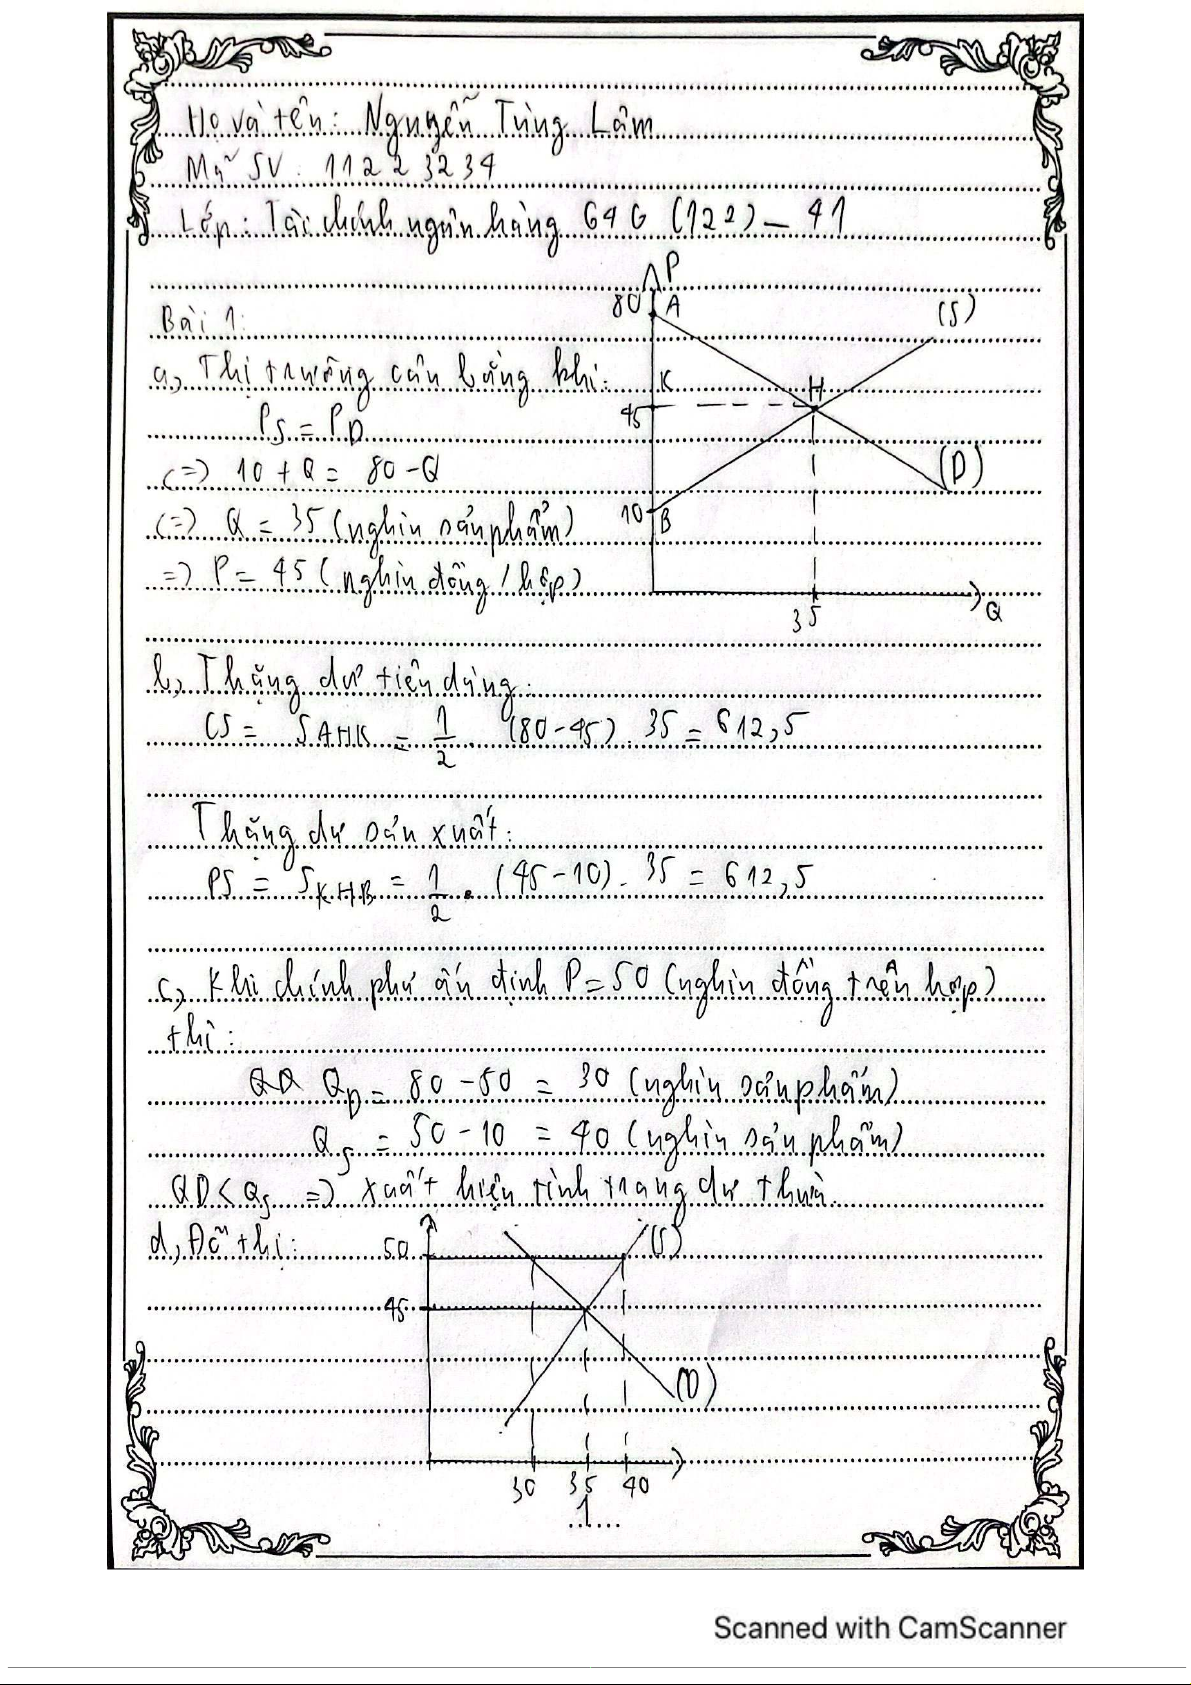 Họ và tên: Nguyễn Tùng Lâm
Mã SV: 11223234
Lớp: Tài chính ngân hàng 64G (122) - 41
Bài 1:
a, Thị trường cân bằng khi:
PS = PD
<=> 10 + Q = 80 - Q
<=> Q = 35 (nghìn sản phẩm)
=> P = 45 (nghìn đồng / hộp)
P
80 A
(S)
K
H
45
(D)
10 B
35
Q
b, Thặng dư tiêu dùng:
CS = SAHK = 1/2 . (80-45) . 35 = 612,5
Thặng dư sản xuất:
PS = SKHB = 1/2 . (45-10) . 35 = 612,5
c, Khi chính phủ ấn định P = 50 (nghìn đồng trên hợp)
thì:
QD = 80 - 50 = 30 (nghìn sản phẩm)
QS = 50 - 10 = 40 (nghìn sản phẩm)
QD < QS => xuất hiện tình trạng dư thừa.
d, Đồ thị:
50
(S)
45
(D)
30 35 40
1
Scanned with CamScanner